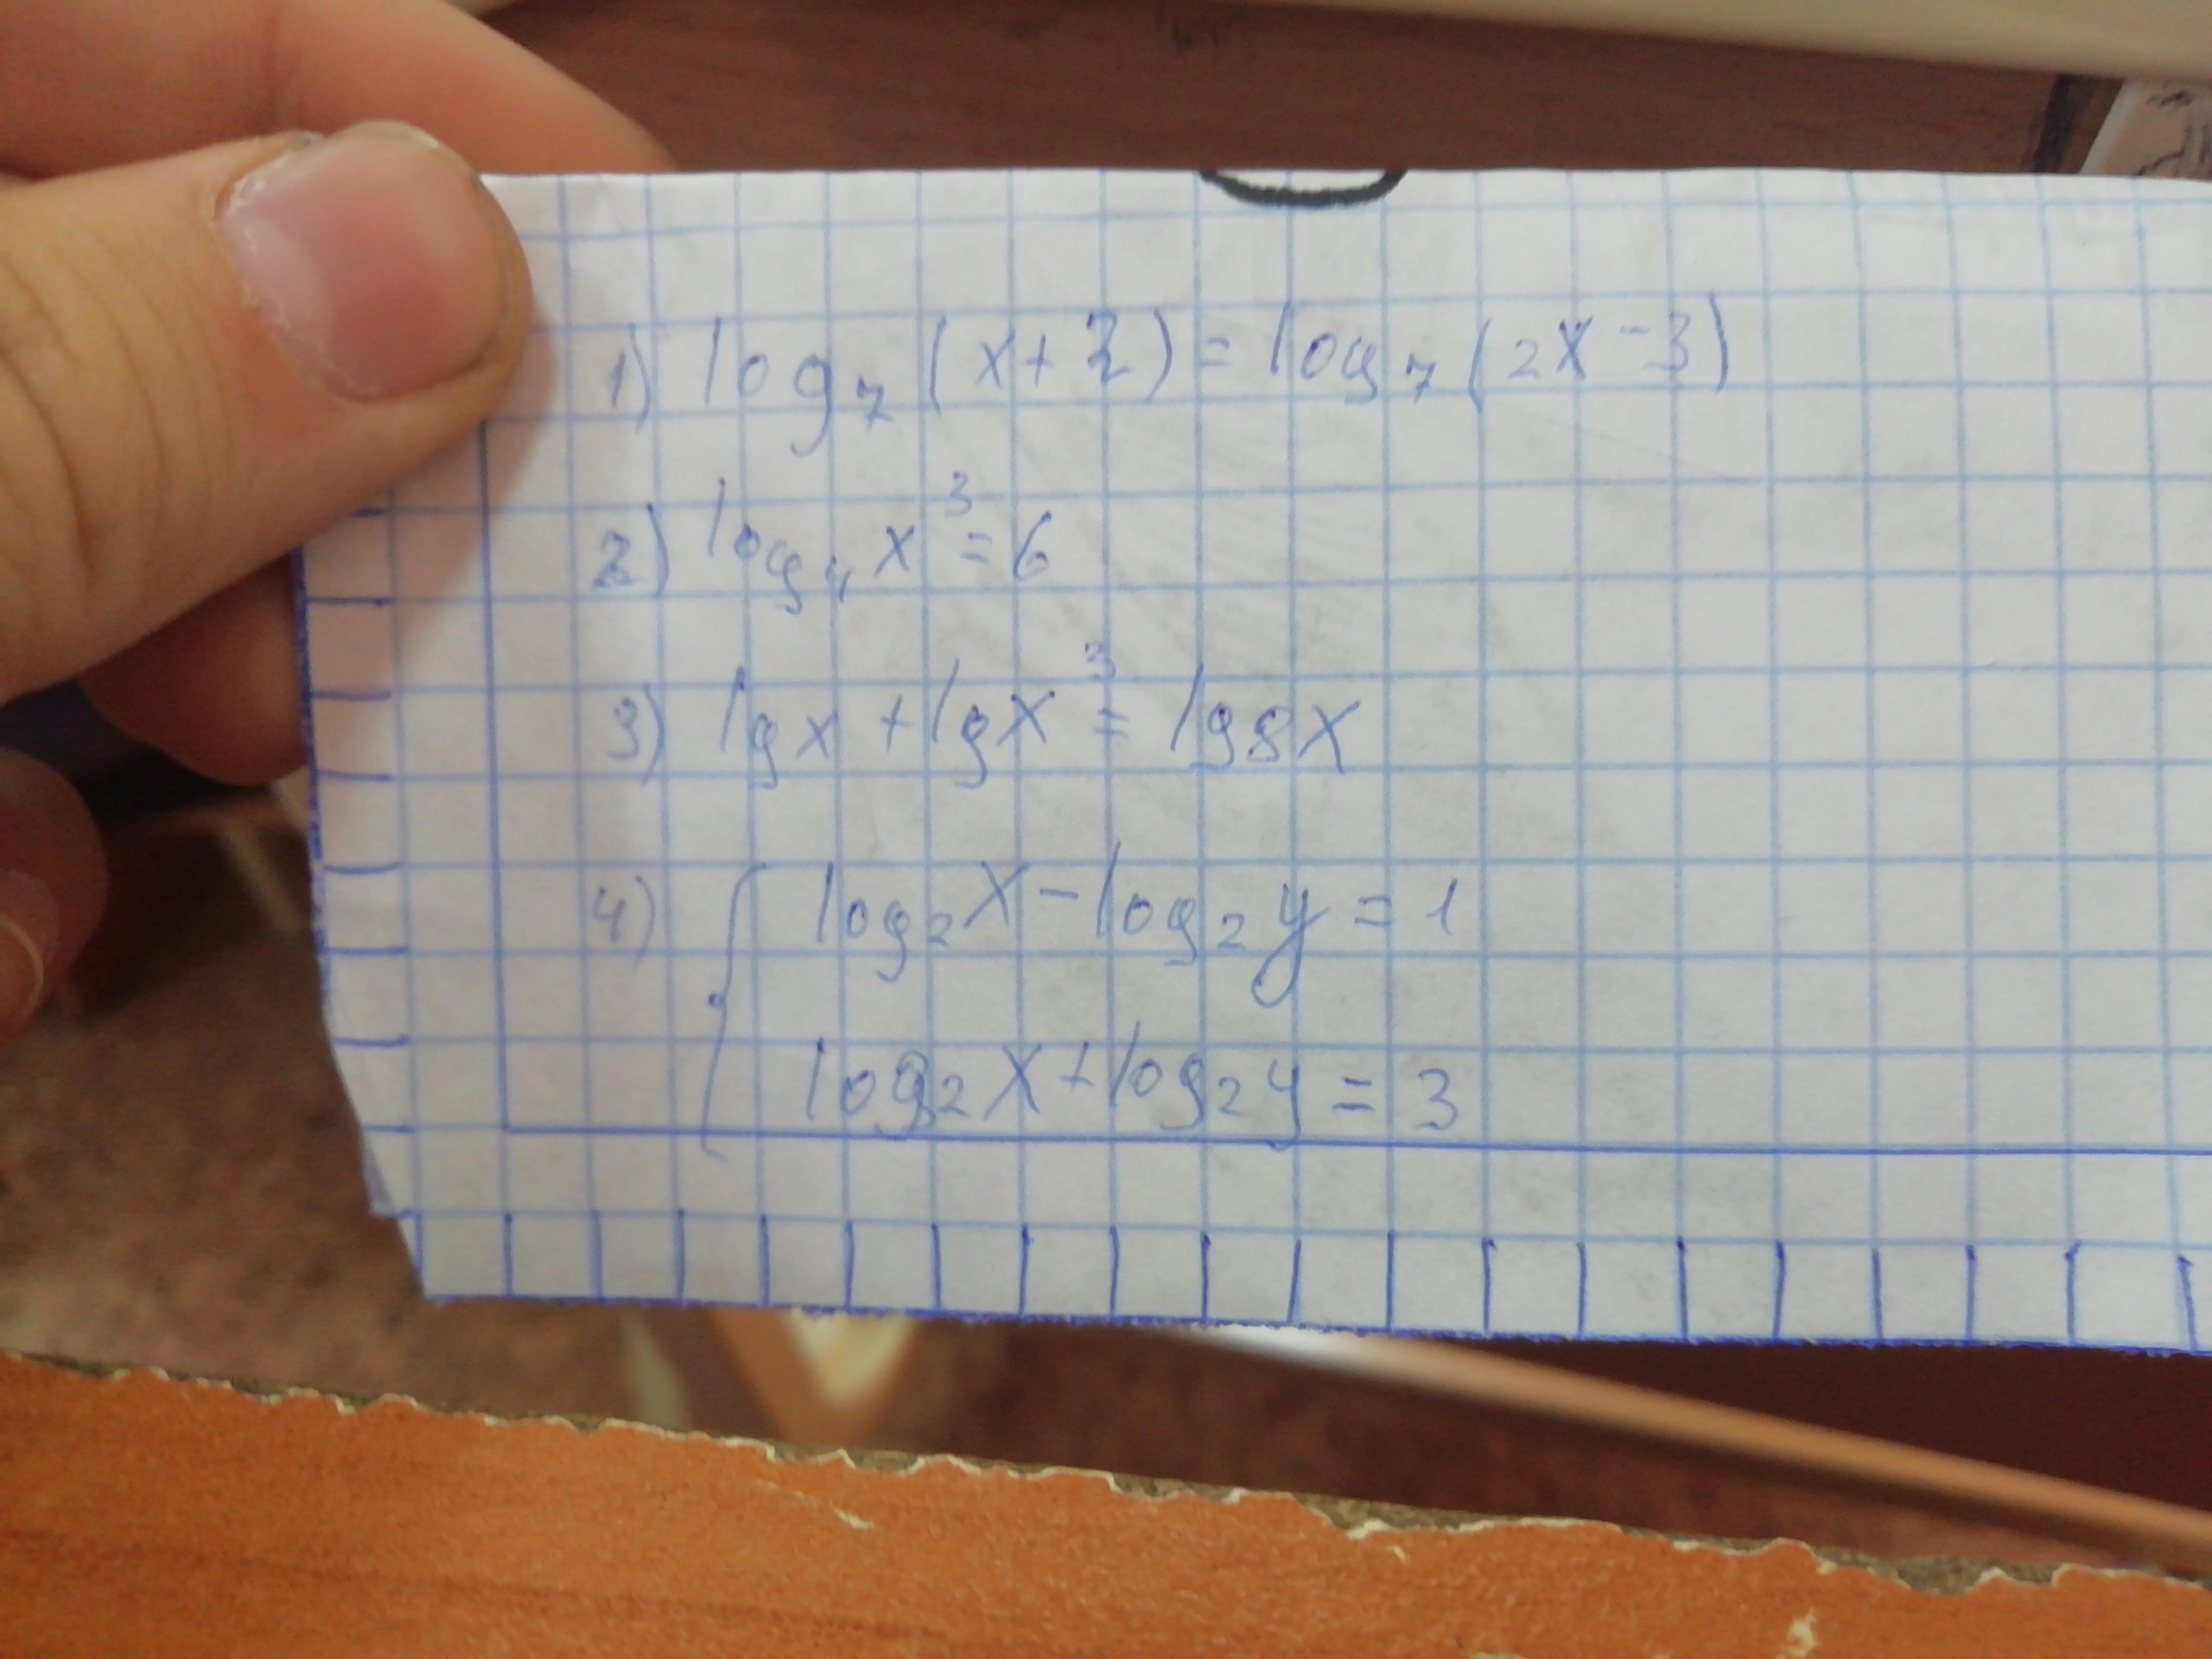 1) log₇(x+2)=log₇(2x-3)
2) log₄x³=6
3) lgx+lgx³=lg8x
4) { log₂x-log₂y=1
log₂x+log₂y=3